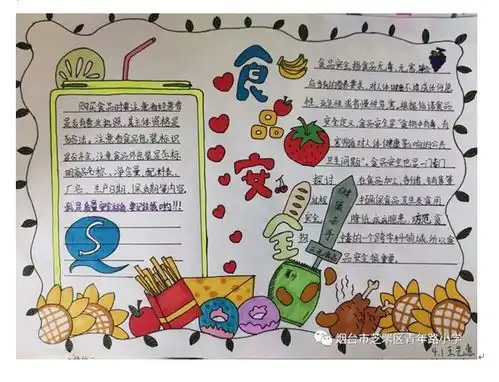 食品安全
购买食品时要注意看经营者
是否有营业执照，其主体资格是
否合法，注意看食品包装标识
是否齐全，注意食品外包装是否标
明商品名称、净含量、配料表、
厂名、生产日期、保质期等内容。
S
食品安全指食品无毒、无害，
应当有的营养要求，对人体健康不造成任何急
性、亚急性或者慢性危害。根据
食品安全定义，食品安全是“食物中有毒、有
害物质对人体健康影响的公共
卫生问题”。食品安全也是一门专门
探讨在食品加工、存储、销售等
过程中确保食品卫生及食用
安全，降低疾病隐患，防范食
中毒的一个跨学科领域，所以食
品安全很重要。
健康杀手
烟台市芝罘区青年路小学
4.1